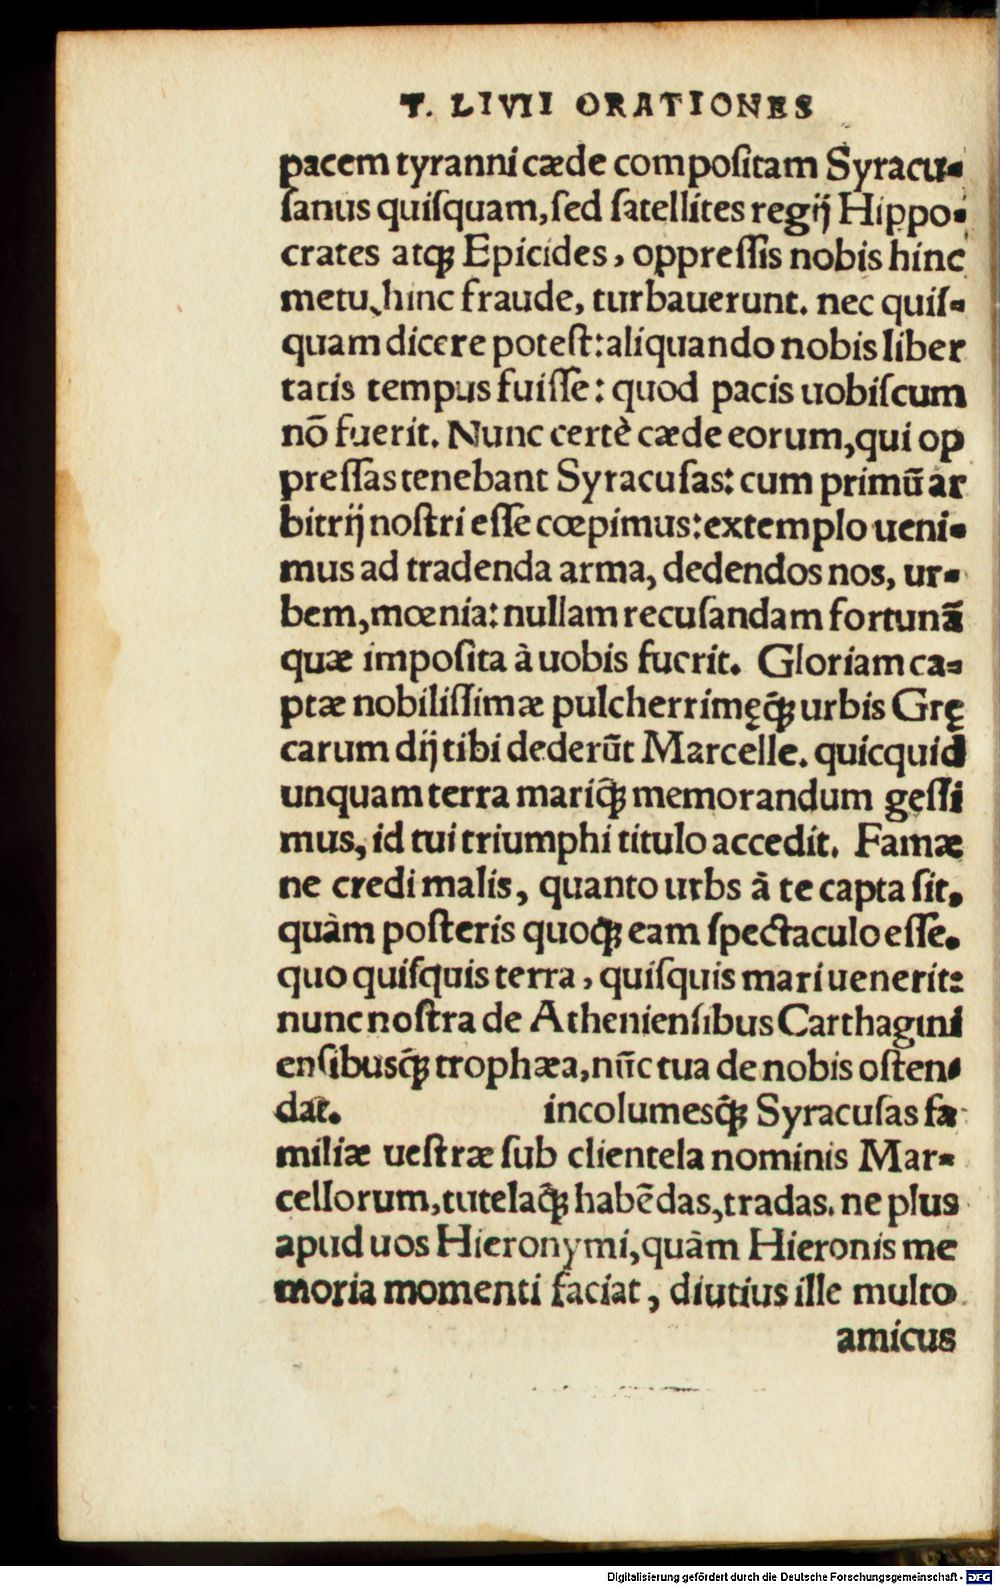 T. LIVII ORATIONES
pacem tyranni cæde compoſitam Syracu-
ſanus quiſquam, ſed ſatellites regij Hippo-
crates atq; Epicides, oppreſſis nobis hinc
metu, hinc fraude, turbauerunt. nec quiſ-
quam dicere poteſt: aliquando nobis liber
tatis tempus fuiſſe: quod pacis uobiſcum
nõ fuerit. Nunc certè cæde eorum, qui op
preſſas tenebant Syracuſas: cum primũ ar
bitrij noſtri eſſe cœpimus: extemplo ueni-
mus ad tradenda arma, dedendos nos, ur-
bem, mœnia: nullam recuſandam fortunã
quæ impoſita à uobis fuerit. Gloriam ca-
ptæ nobiliſſimæ pulcherrimęq́; urbis Grę
carum dij tibi dederũt Marcelle. quicquid
unquam terra mariq́; memorandum geſſi
mus, id tui triumphi titulo accedit. Famæ
ne credi malis, quanto urbs à te capta ſit,
quàm poſteris quoq́; eam ſpectaculo eſſe.
quo quiſquis terra, quiſquis mari uenerit:
nunc noſtra de Athenienſibus Carthagini
enſibusq́; trophæa, nũc tua de nobis oſten-
dat. incolumesq́; Syracuſas fa
miliæ ueſtræ ſub clientela nominis Mar-
cellorum, tutelaq́; habẽdas, tradas. ne plus
apud uos Hieronymi, quàm Hieronis me
moria momenti faciat, diutius ille multo
amicus
Digitalisierung gefördert durch die Deutsche Forschungsgemeinschaft - DFG